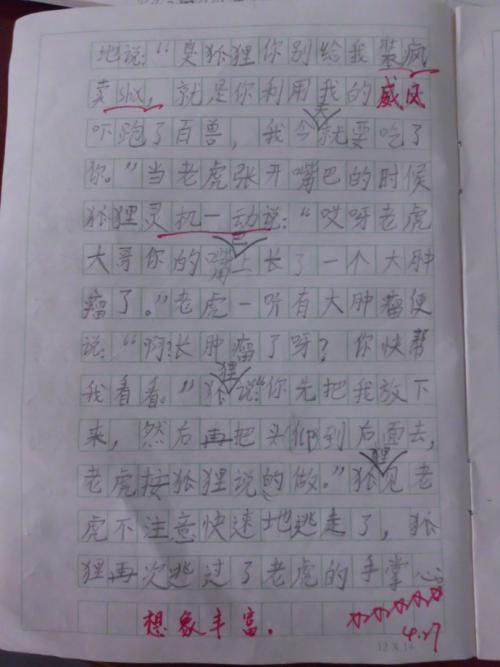 地说：“臭狐狸你别给我装疯
卖shǎ，就是你利用我的威风
吓跑了百兽，我今天就要吃了
你。”当老虎张开嘴巴的时候
狐狸灵机一动说：“哎呀老虎
大哥你的嘴巴上长了一个大肿
瘤了。”老虎一听有大肿瘤便
说：“啊？长肿瘤了呀？你快帮
我看看。”狐狸说：“你先把我放下
来，然后再把头仰到后面去，
老虎按狐狸说的做。”狐狸见老
虎不注意快速地逃走了，狐
狸再次逃过了老虎的手掌心
想象丰富.
4.27
12×14